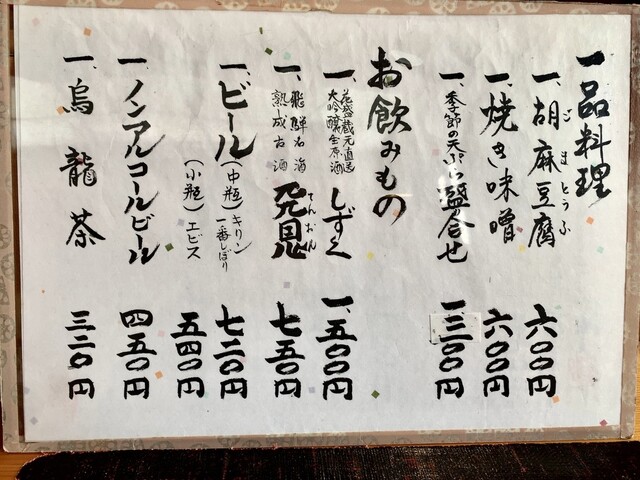 一品料理
一、胡麻豆腐 六〇〇円
ごまとうふ
一、焼き味噌 六〇〇円
一、季節の天ぷら盛合せ 一三〇〇円
お飲みもの
一、花盛蔵元直送
大吟醸生原酒 しずく 一、五〇〇円
一、飛騨名酒
熟成古酒 天恩 七五〇円
てんおん
一、ビール (中瓶) キリン
一番しぼり 七二〇円
(小瓶) エビス 五四〇円
一、ノンアルコールビール 四五〇円
一、烏龍茶 三二〇円